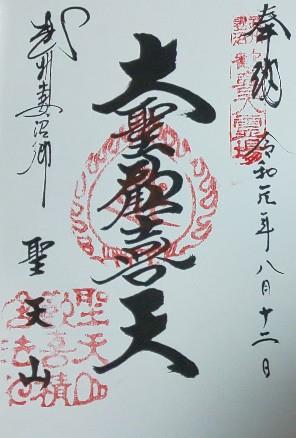 奉納 令和元年八月十二日
大聖歓喜天
武州妻沼郷
聖天山